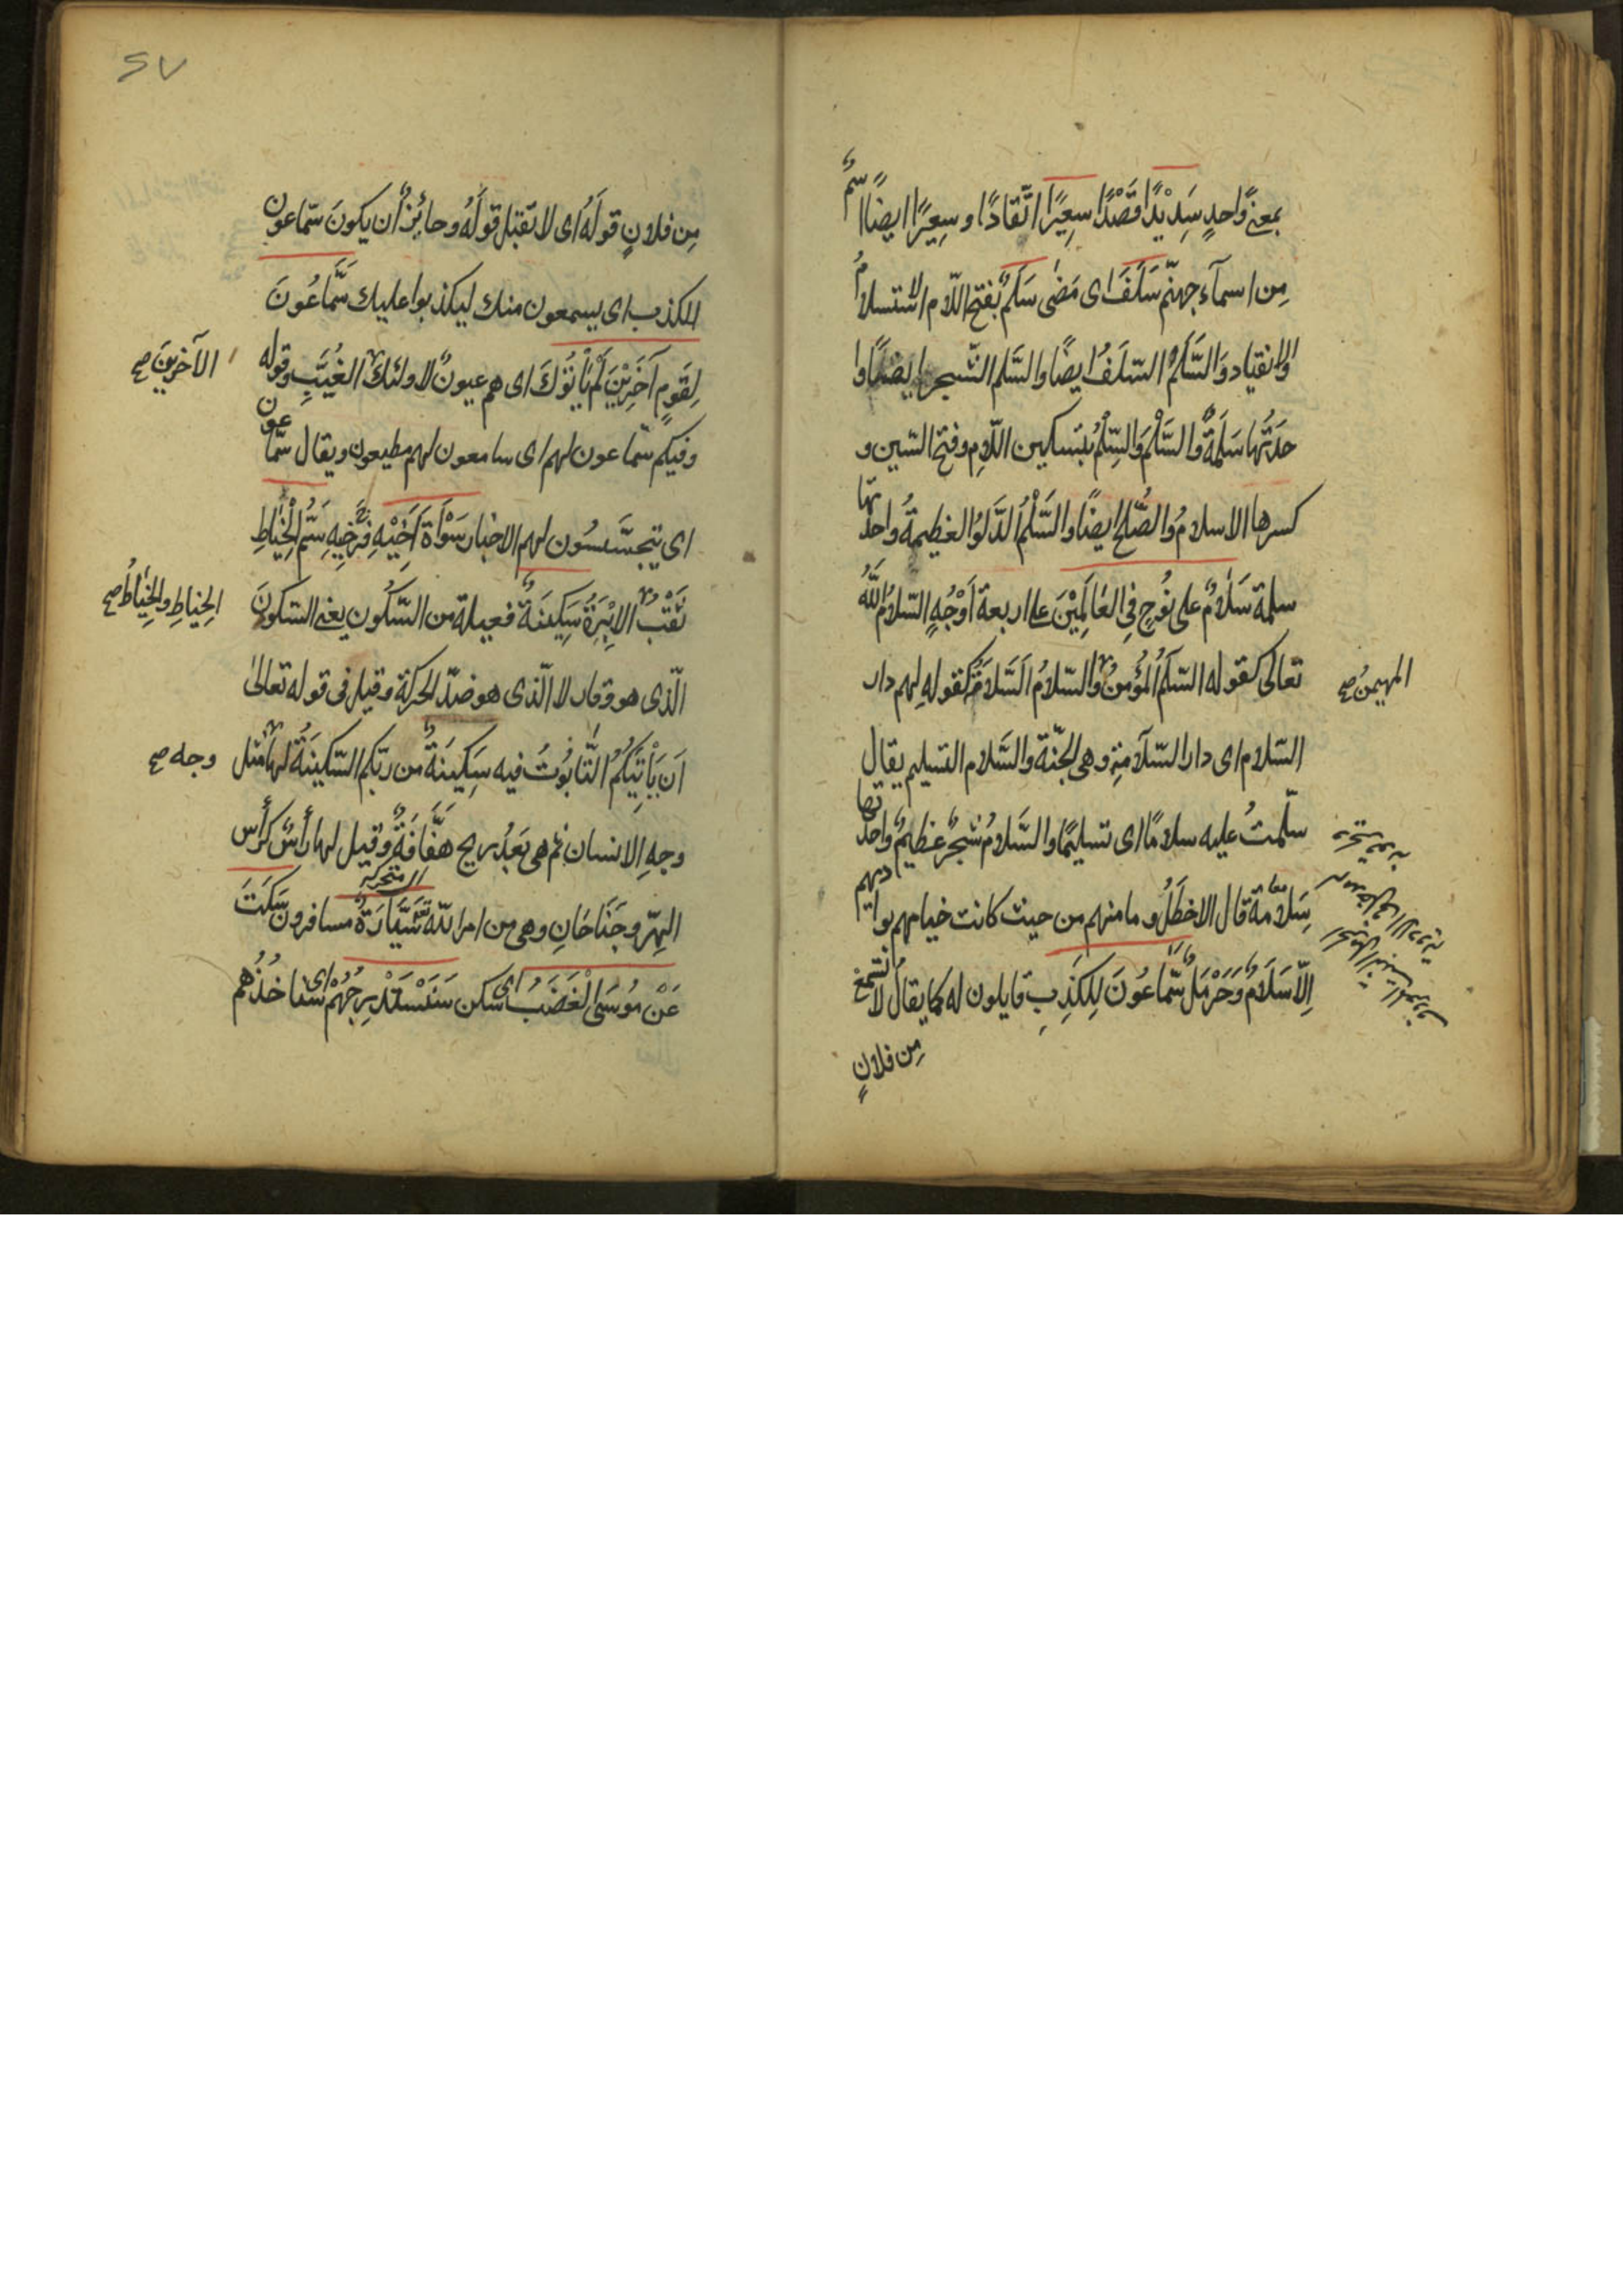 بمعنًى واحدٍ سَدِيْدًا قَصْدًا سعِيرًا اتّقادًا وسِعِيرًا ايضًا اسمٌ
مِن اسمآء جهنّم سَلَفَ اى مَضٰى سَلَمٌ بفتح اللّام الاستسلامُ
والانقياد وَالسَّلَمُ السّلَفُ ايضًا والسَّلم الشّجر ايضًا وا
حدَتُها سَلَمَةٌ والسَّلْمُ وَالسِّلْمُ بتسكين اللّامِ وفتح السّين و
كسرها الاسلامُ والصُّلح ايضًا والسَّلْمُ الدَّلوُ العظيمةُ واحدتها
سلمة سَلَامٌ على نُوحٍ فِى العٰالَمِيْنَ على اربعة اَوْجُهٍ السّلامُ اللّٰهُ
تعالى كقوله السّلَمُ المُؤمِنُ والسّلامُ السَّلَامَةُ كقولِهِ لهم دار
المهيمنُ صح
السّلام اى دار السّلامةِ وهى الجنّة والسَّلام التسليم يقال
سلّمتُ عليه سلامًا اى تسليمًا والسَّلامُ شجرٌ عظيمٌ واحدتها
سِلامة قال الاخطَلُ وما منهم من حيث كانت خيامهم بواديهم
اِلّا سَلَامٌ وَحَرْمَلٌ سَمَّاعُونَ لِلكَذِبِ قايلون له كما يقال لا تسمعْ
مِن فلانٍ
مِن فلانٍ قولَهُ اى لا تَقبَل قولَهُ وجائِزٌ ان يكونَ سمّاعون
للكذب اى يسمعون منك ليكذبوا عليك سَمَّاعُونَ
لِقَومٍ آخَرِيْنَ لَمْ يَأتُوْكَ اى هم عيونٌ لاولئك الغُيَّبِ وقوله
الآخرِينَ صح
وفيكم سمّاعون لهم اى سامعون لهم مطيعون ويقال سمّاعون
اى يتجسَّسُون لهم الاخبار سَوْأَةَ اَخِيْهِ فرْج اخيهِ سَمِّ الْخِيَاطِ
ثَقْبُ الاِبْرَةِ سَكِينَةٌ فعيلة من السّكُون يعنى السّكونَ
الخياطِ والخِيَاطُ صح
الّذى هو وقار لا الّذى هو ضدّ الحركة وقيل فى قوله تعالىٰ
اَن يَأتِيَكُمُ التَّابُوتُ فيه سَكِينَةٌ من ربّكم السّكينَةُ لها مثل
وجه صح
وجهِ الانسان ثم هى بَعْدُ ريح هَفَّافَةٌ وقيل لها رأسٌ كرأس
المتحركة
الهِرّ وجَنَاحَانِ وهى من امر اللّه سَيَّارَةٌ مسافرون سَكَتَ
عَنْ مُوسَى الْغَضَبُ اى سكن سَنَسْتَدْرِجُهُمْ اى سنأخذُهم